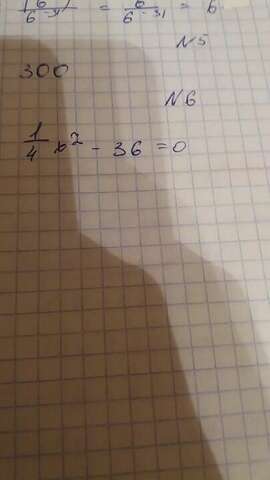 6⁻³¹ = 6⁻³¹ = 6
N5
300
N6
1/4 x² - 36 = 0